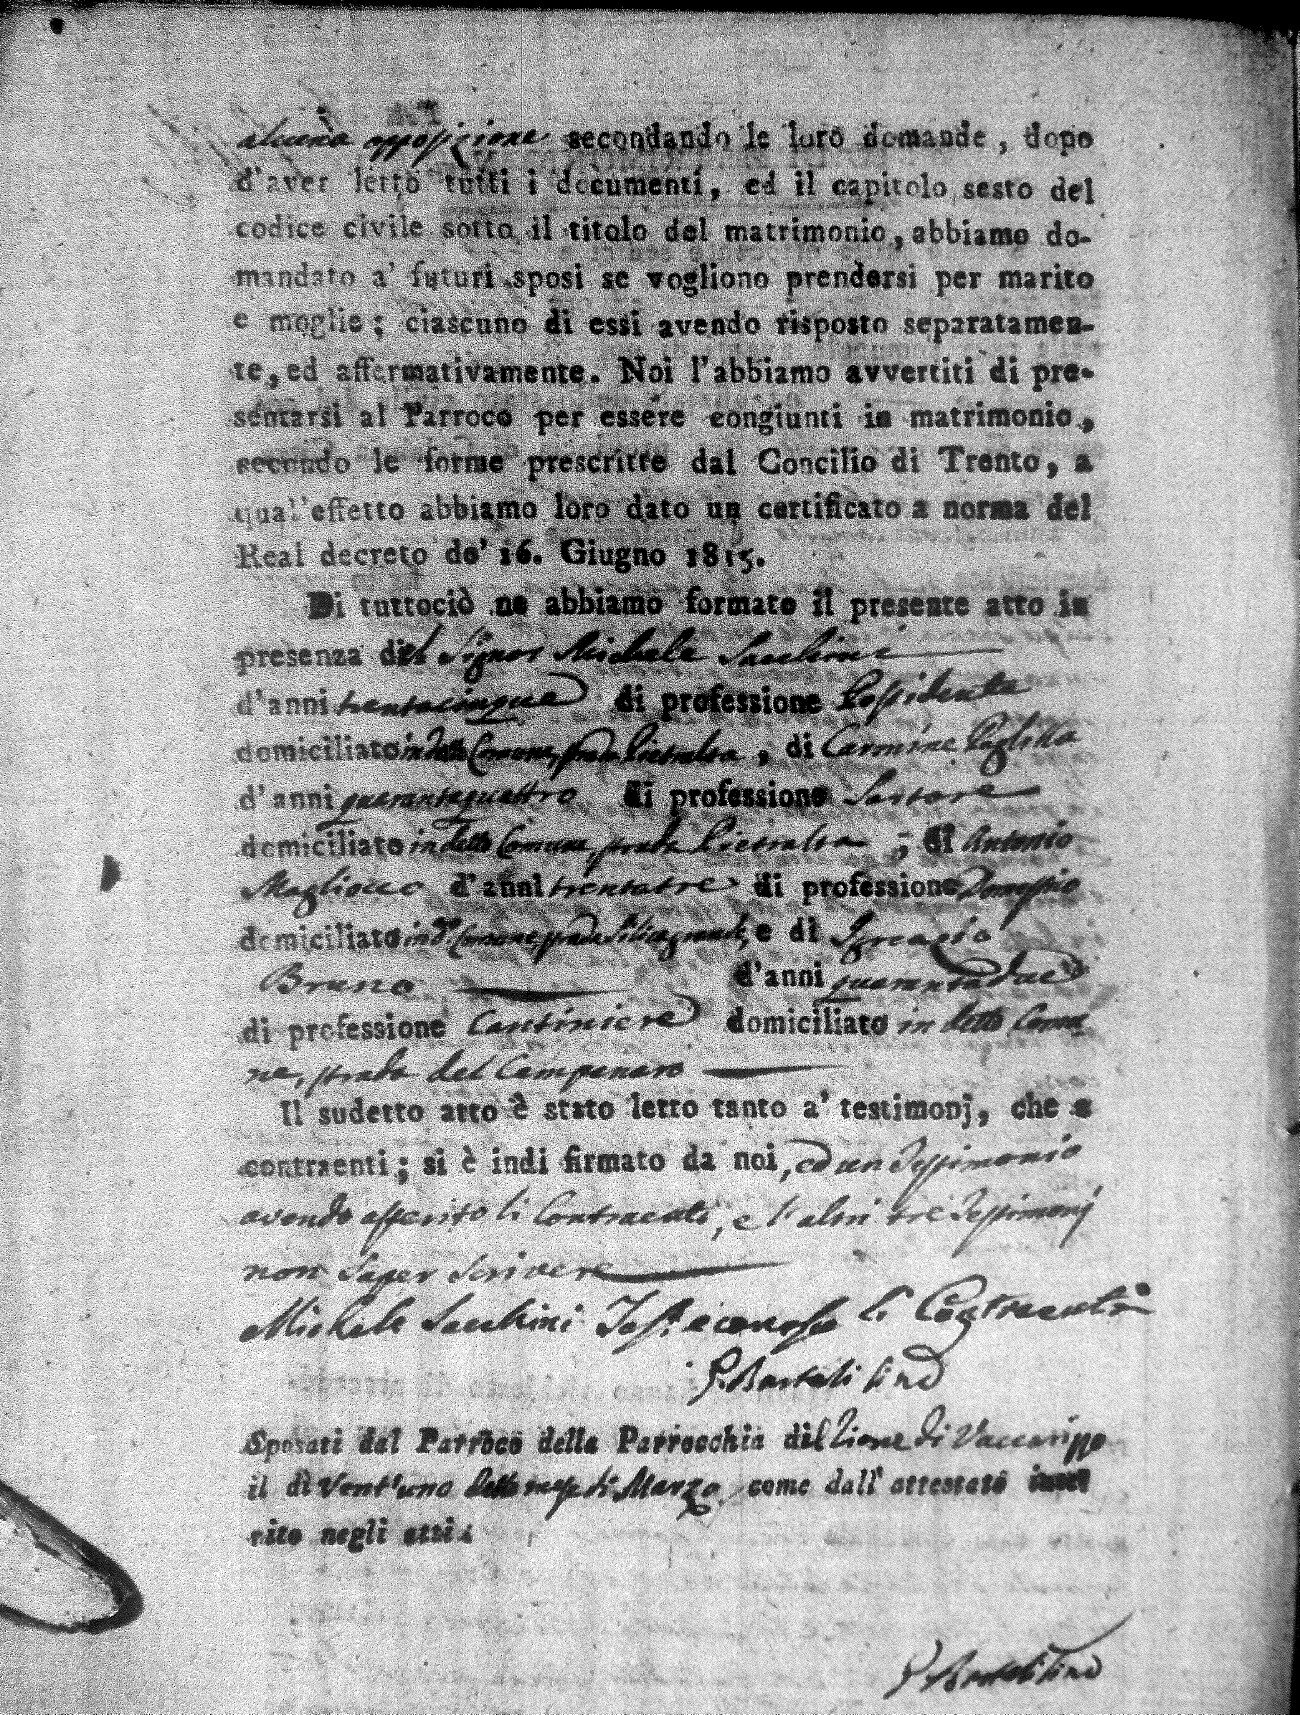 alcuna opposizione secondando le loro domande, dopo
d'aver letto tutti i documenti, ed il capitolo sesto del
codice civile sotto il titolo del matrimonio, abbiamo do-
mandato a' futuri sposi se vogliono prendersi per marito
e moglie; ciascuno di essi avendo risposto separatamen-
te, ed affermativamente. Noi l'abbiamo avvertiti di pre-
sentarsi al Parroco per essere congiunti in matrimonio,
secondo le forme prescritte dal Concilio di Trento, a
qual'effetto abbiamo loro dato un certificato a norma del
Real decreto de' 16. Giugno 1815.
Di tuttociò ne abbiamo formato il presente atto in
presenza del Signor Michele Sacchini
d'anni trentacinque di professione Possidente
domiciliato in detta Comune, strada Pietralta, di Carmine Paglilla
d'anni quarantaquattro di professione Sartore
domiciliato in detto Comune, strada Pietralta; di Antonio
Magliocco d'anni trentatre di professione
domiciliato in d.º Comune, strada e di Ignazio
Bruno d'anni quarantadue
di professione Cantiniere domiciliato in detto Comu
ne, strada del Campanaro
Il sudetto atto è stato letto tanto a' testimonj, che a
contraenti; si è indi firmato da noi, ed un Testimonio
avendo asserito li Contraenti, e l'altri tre Testimonj
non saper scrivere
Michele Sacchini Test.e e conosco li Contraenti
Sposati dal Parroco della Parrocchia di di Vaccarizzo
il dì Vent'uno detto mese di Marzo come dall'attestato inse
rito negli atti.